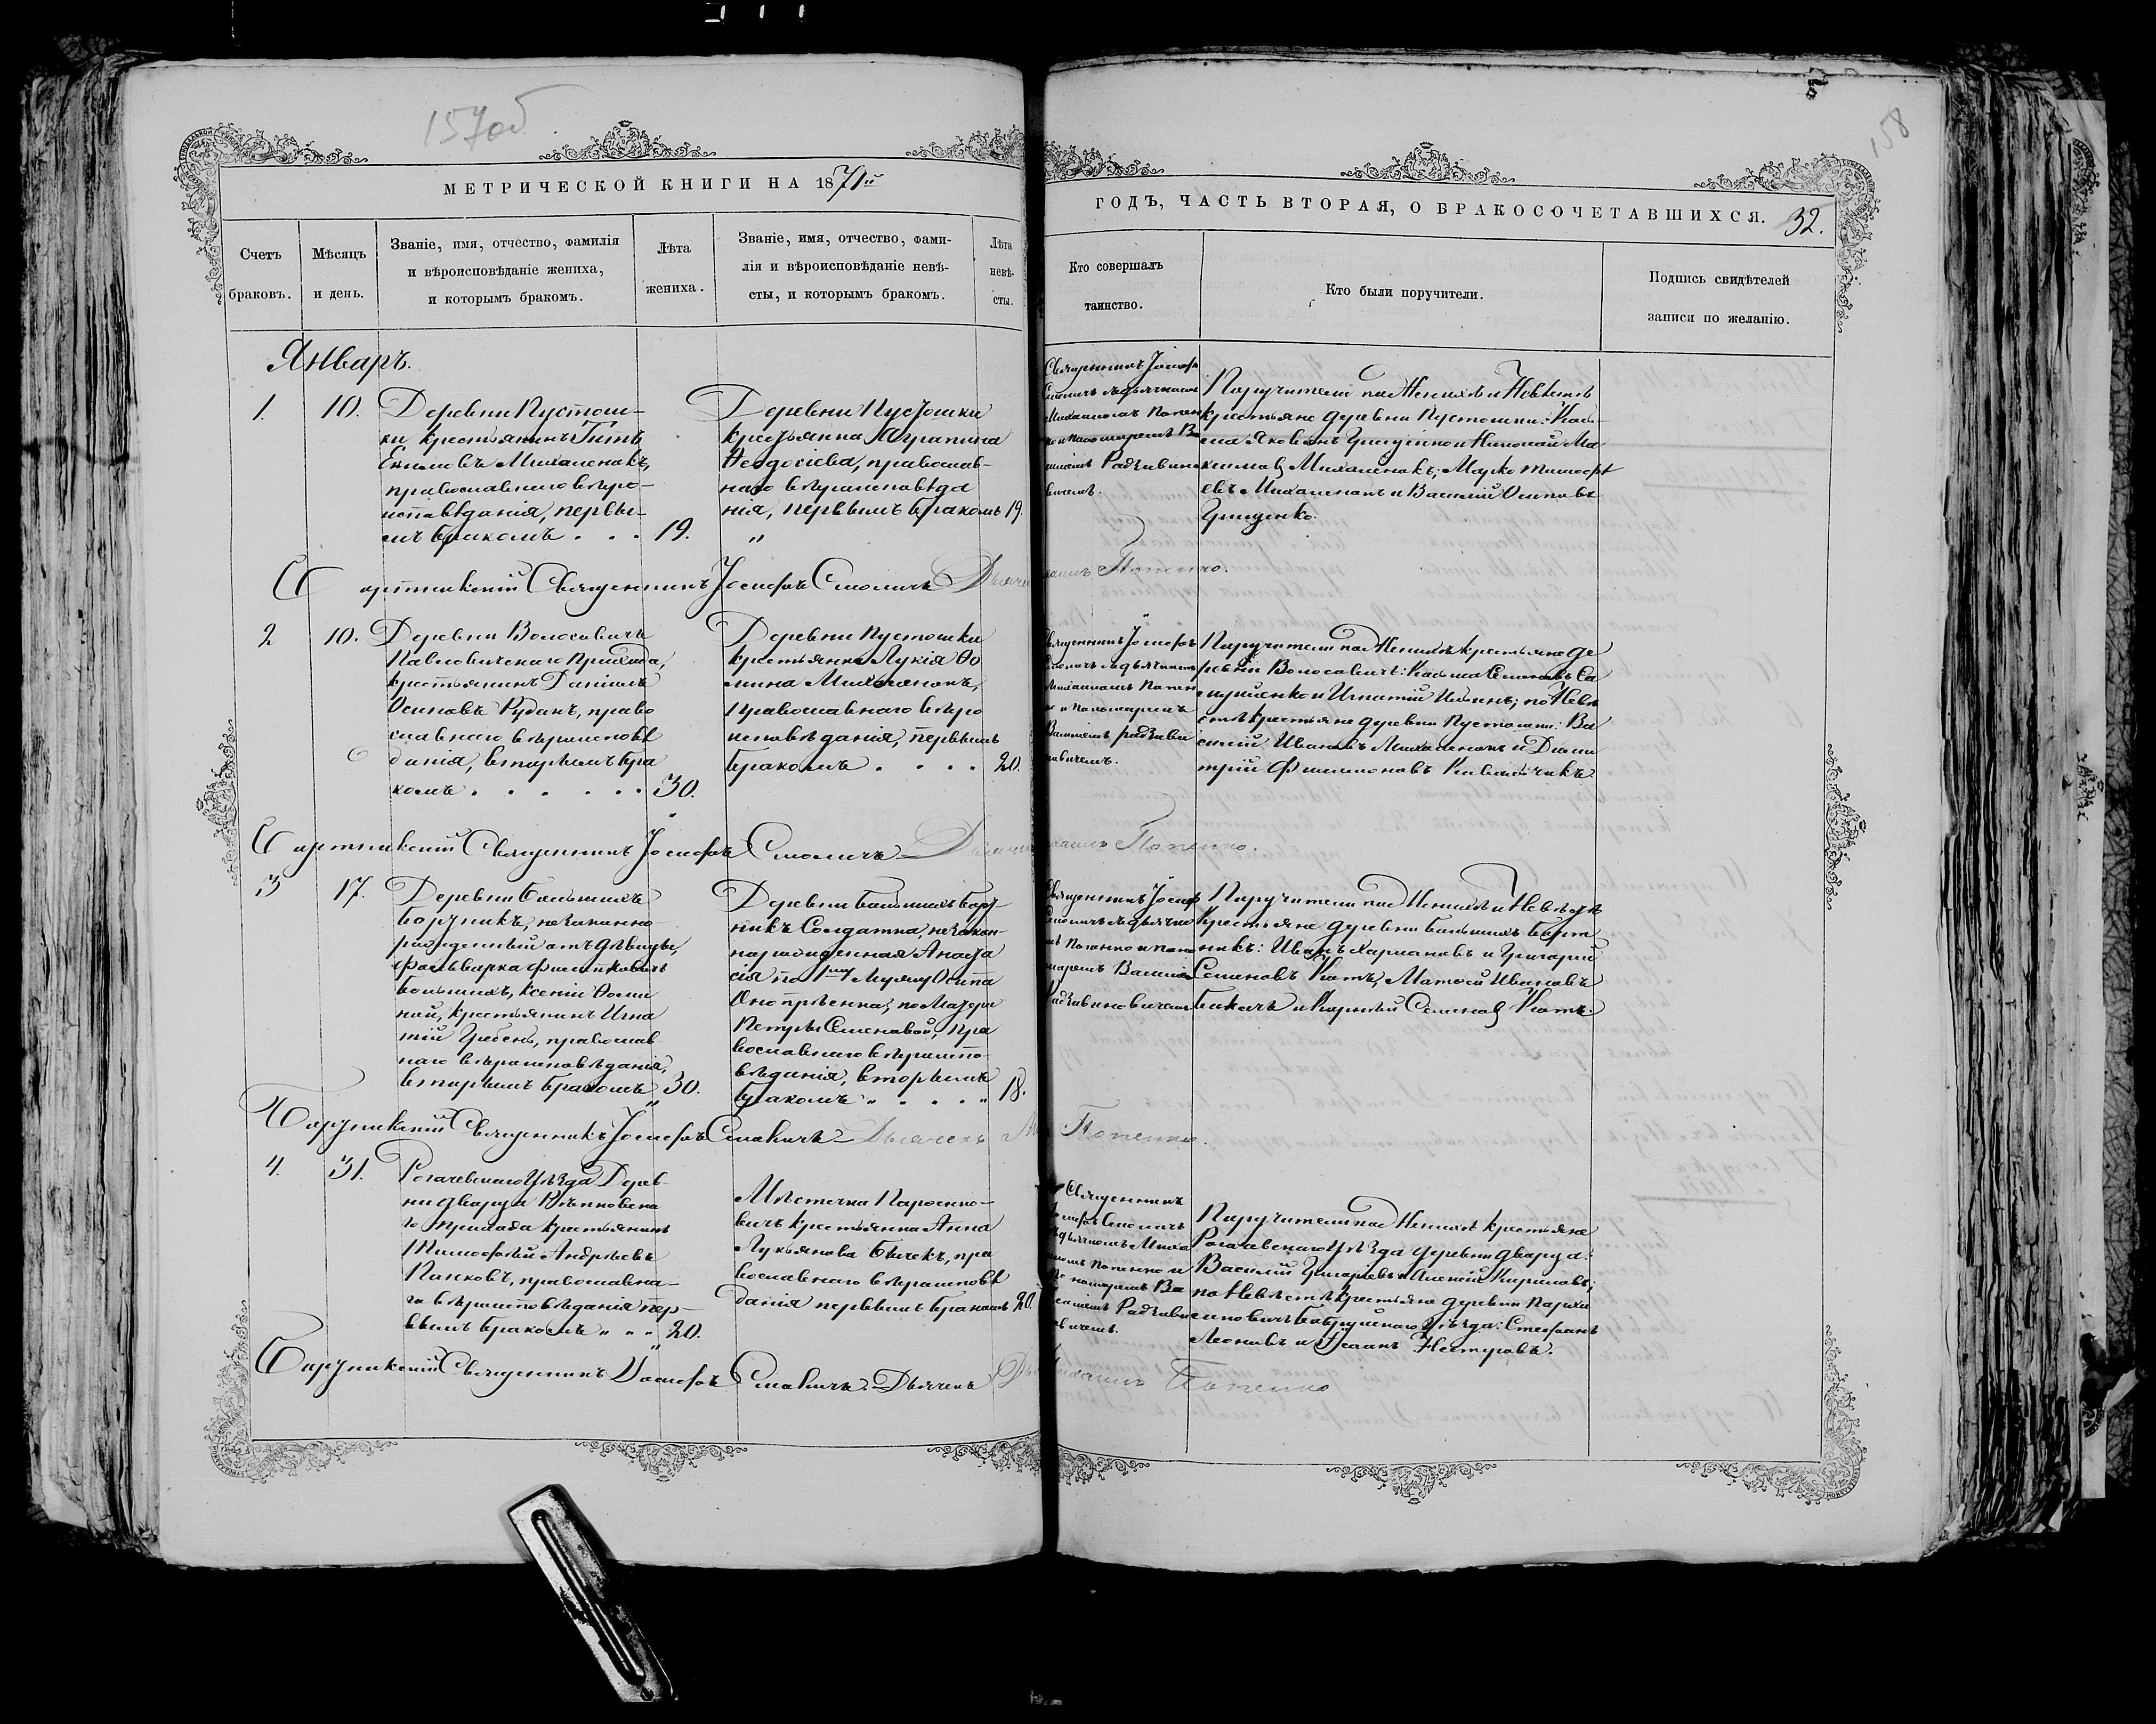 157об
158
МЕТРИЧЕСКОЙ КНИГИ НА 1871й
ГОДЪ, ЧАСТЬ ВТОРАЯ, О БРАКОСОЧЕТАВШИХСЯ. 32.
Счетъ
браковъ.
Мѣсяцъ
и день.
Званіе, имя, отчество, фамилія
и вѣроисповѣданіе жениха,
и которымъ бракомъ.
Лѣта
жениха.
Званіе, имя, отчество, фами-
лія и вѣроисповѣданіе невѣ-
сты, и которымъ бракомъ.
Лѣта
невѣ-
сты.
Кто совершалъ
таинство.
Кто были поручители.
Подпись свидѣтелей
записи по желанію.
Январъ.
1. 10.
Деревни Пустош-
ки крестьянинъ Титъ
Михаленокъ,
православнаго вѣро-
исповѣданія, первы-
мъ бракомъ . . . 19.
Деревни Пустошки
крестьянка Агрипина
Ѳеодосіева, православ-
наго вѣроисповѣда
нія, первымъ бракомъ 19.
Священникъ Іосифъ
Смоличъ съ дьячкомъ
Михаиломъ Попен
ко и пономаремъ Ва
силіемъ Радзивино
вичемъ.
Поручители по Женихѣ и Невѣстѣ
крестьяне деревни Пустошки: Кось-
ма Яковлевъ Грищенко и Николай Ма
ксимовъ Михаленокъ; Марко Тимоѳе
евъ Михаленокъ и Василій Осиповъ
Грищенко.
Священникъ Іосифъ Смоличъ Попенко.
2 10.
Деревни Волосовичъ
Павловичскаго прихода,
крестьянинъ Даніилъ
Осиповъ Рудакъ, право
славнаго вѣроисповѣ
данія, вторымъ бра
комъ . . . . . . 30.
Деревни Пустошки
крестьянка Лукія Ѳо
мина Михаленокъ,
Православнаго вѣро
исповѣданія, первымъ
бракомъ . . . . 20.
Священникъ Іосифъ
Смоличъ съ дьячкомъ
Михаиломъ Попен
ко и пономаремъ
Василіемъ Радзиви
новичемъ.
Поручители по Женихѣ крестьяне де
ревни Волосовичъ: Косьма Семеновъ
и Игнатій; по Невѣ
стѣ крестьяне деревни Пустошки: Ва
силій Ивановъ Михаленокъ и Дими
трій Филимоновъ Ковальчикъ.
Священникъ Іосифъ Смоличъ Попенко.
3 17.
Деревни Большихъ
Бортникъ, незаконно
рожденный отъ дѣвицы,
фольварка
Большихъ, Ксеніи Ѳоми
ной, крестьянинъ Игна
тій Гребень, православ
наго вѣроисповѣданія,
вторымъ бракомъ 30.
Деревни Большихъ Борт-
никъ Солдатка, незакон-
норожденная Анаста
сія по 1му Мужу Осипа
по Матери
Петры Семеновой, Пра
вославнаго вѣроиспо
вѣданія, вторымъ
бракомъ . . . . 18.
Священникъ Іосифъ
Смоличъ съ дьячко
мъ Попенко и поно
маремъ Василіемъ
Радзивиновичемъ
Поручители по Женихѣ и Невѣстѣ
Крестьяне деревни Большихъ Борт
никъ: Иванъ Хармановъ и Григорій
Семеновъ Котъ, Матѳей Ивановъ
и Карней Семеновъ Котъ.
Священникъ Іосифъ Смоличъ Дьячекъ Попенко.
4. 31.
Рогачевскаго Уѣзда Дерев-
ни Дворца
го прихода крестьянинъ
Тимоѳей Андреевъ
Панковъ, православна-
го вѣроисповѣданія пер-
вымъ бракомъ . . . 20.
Мѣстечка Паросно-
вичъ крестьянка Анна
Лукьянова Бычекъ, пра
вославнаго вѣроисповѣ
данія первымъ бракомъ 20.
Священникъ
Іосифъ Смоличъ
съ дьячкомъ Миха
иломъ Попенко и
пономаремъ Ва
силіемъ Радзивин
овичемъ.
Поручители по Женихѣ крестьяне
Рогачевскаго Уѣзда деревни Дворца:
Василій Григорьевъ и Алексѣй Кириловъ;
по Невѣстѣ крестьяне деревни
Бобруйскаго Уѣзда: Стефанъ
Леоновъ и Несторовъ.
Священникъ Іосифъ Смоличъ. Дьячекъ Михаилъ Попенко